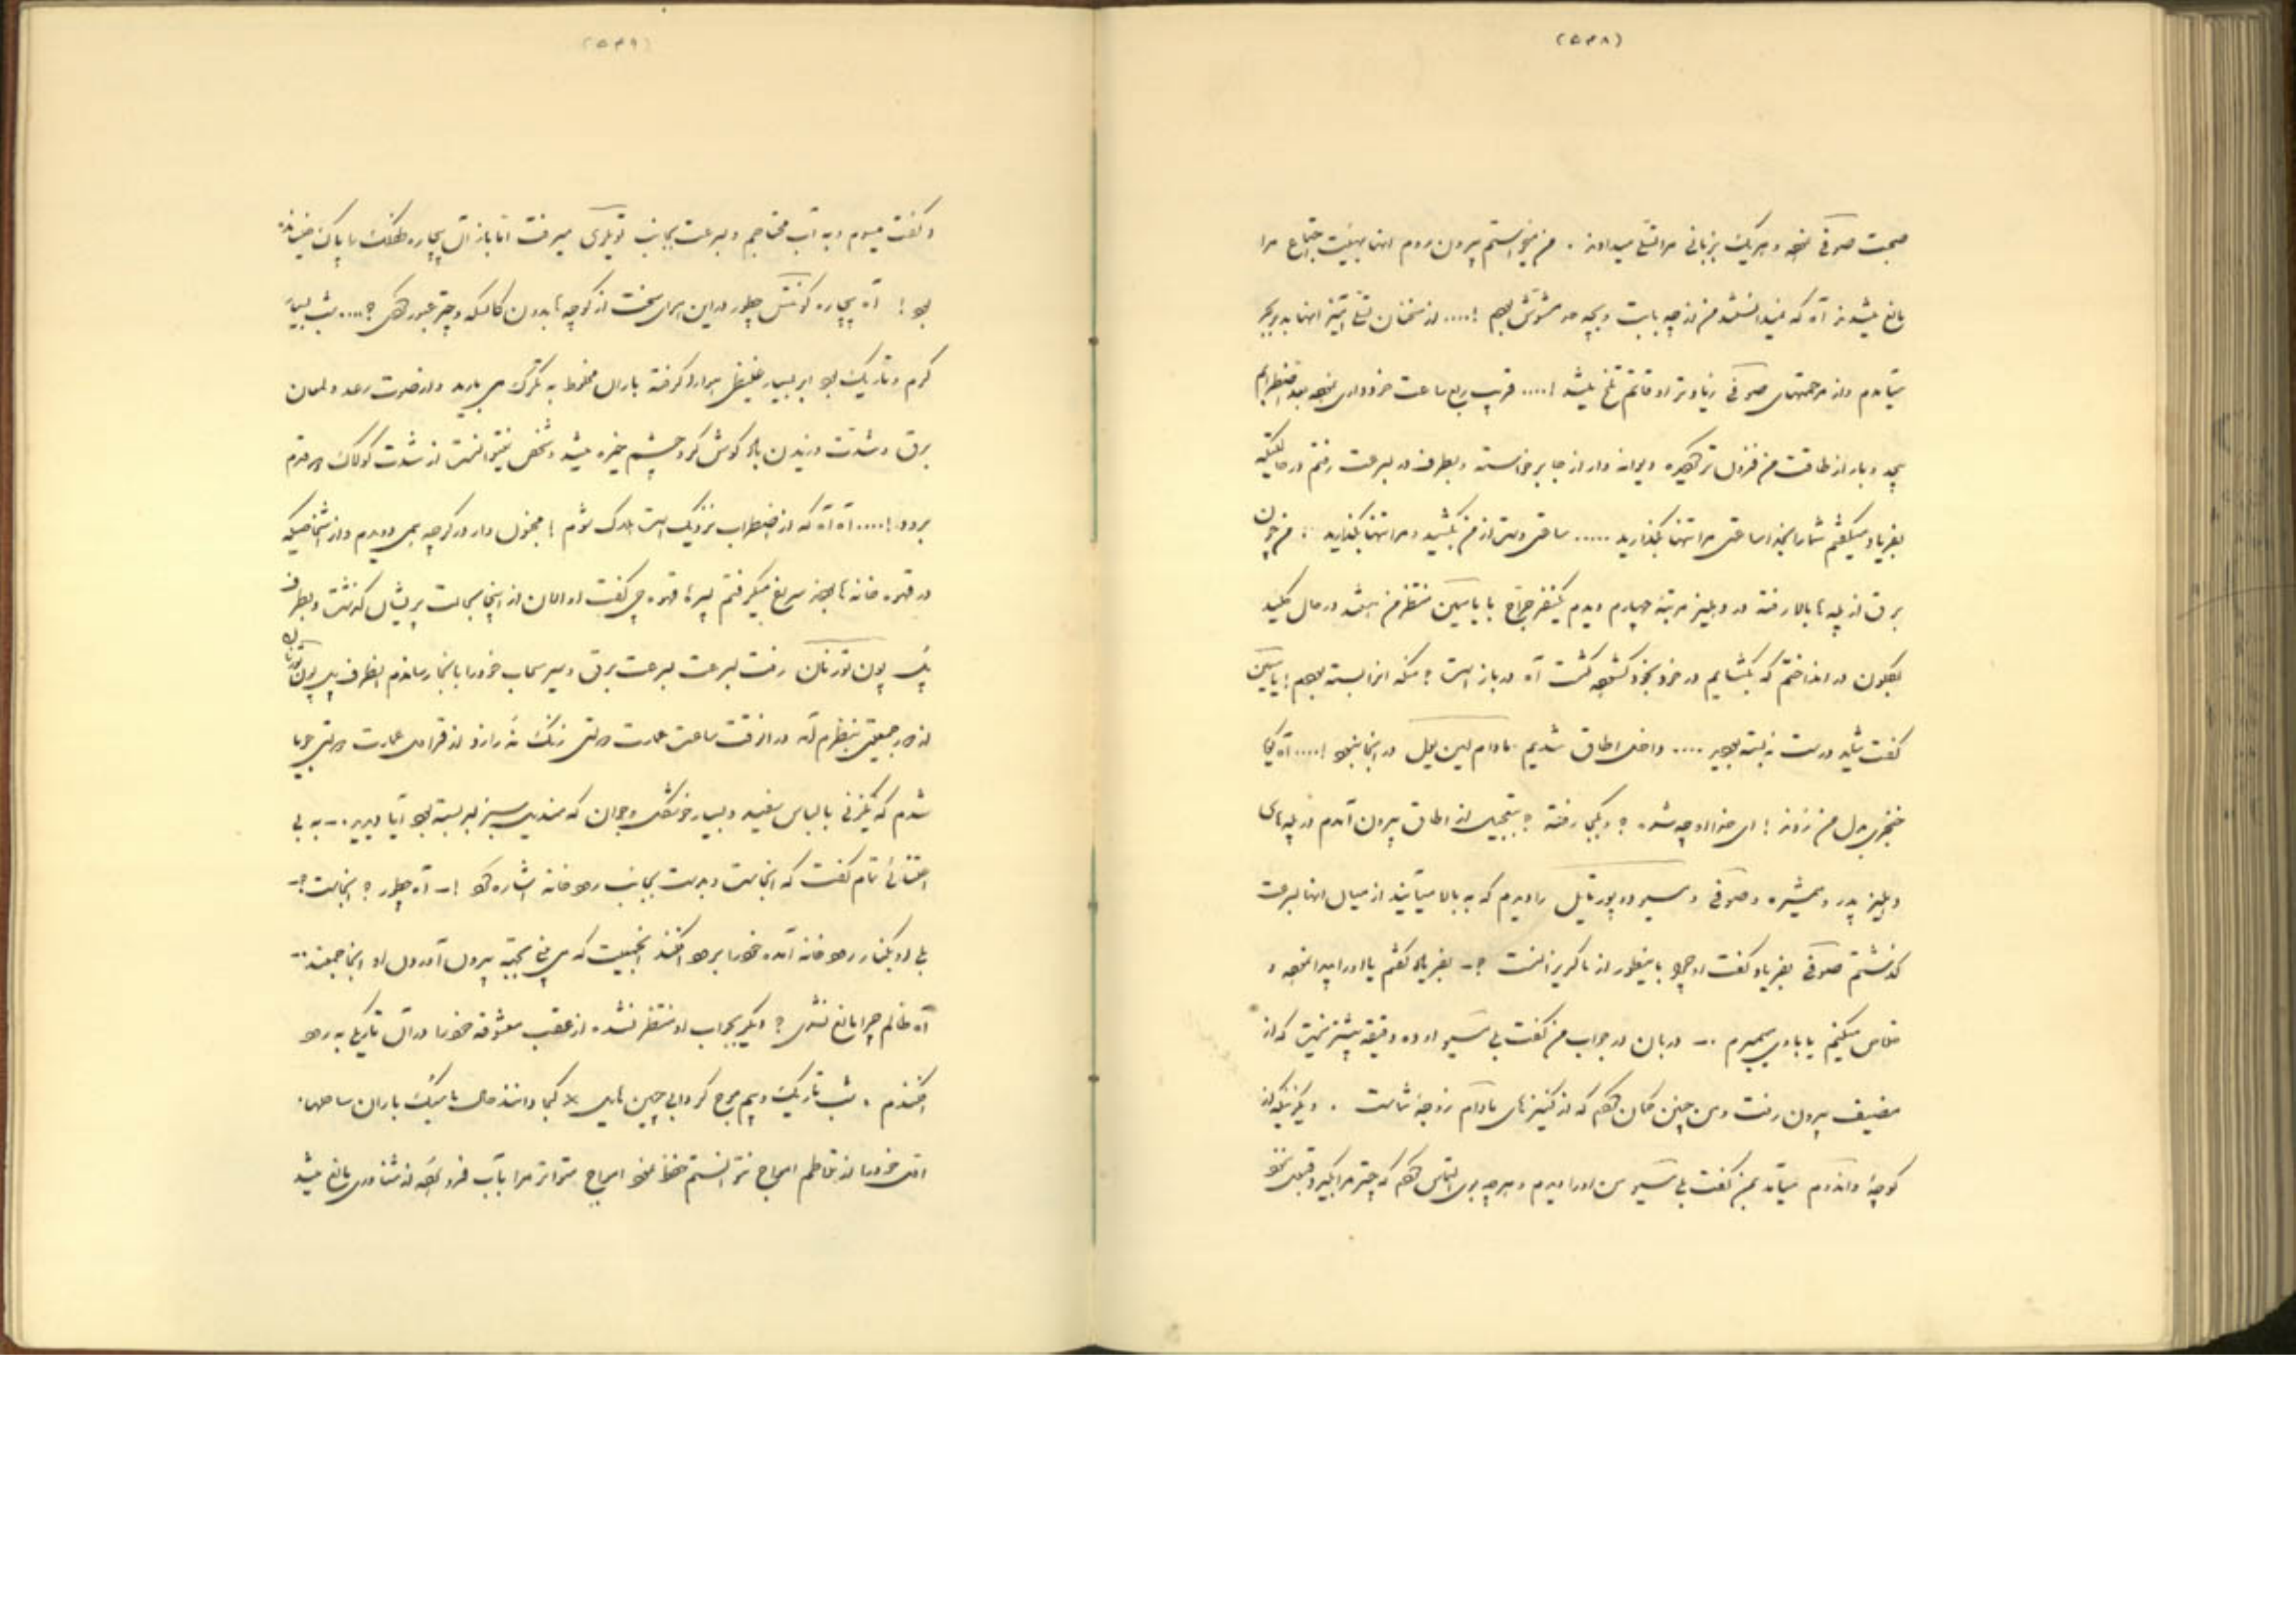 (۵۴۸)
صحبت صوفی نموده و هر یک بزبانی مرا تسلی میدادند . من میخواستم بیرون روم انها بهیئت اجتماع مرا
مانع میشدند آه که نمیدانستند من از چه بابت و بچه حد مشوش بودم !.... از سخنان تسلی آمیز انها بدو بجز
میآمدم و از مرحمتهای صوفی زیادتر اوقاتم تلخ میشد !.... قریب ربع ساعت خودداری نموده بعد اضطرابم
بیحد و بار از طاقت من فزون تر گردیده دیوانه وار از جا برخواسته و بطرف در بسرعت رفتم در حالتیکه
بفریاد میگفتم شما را بخدا ساعتی مرا تنها بگذارید ..... ساعتی دست از من بکشید و مرا تنها بگذارید ! من چون
برق از پله ها بالا رفته در دهلیز مرتبهٔ چهارم دیدم یکنفر جراح با یاسمین منتظر من میباشد در حال کلید
بکلون در انداختم که بگشایم در خود بخود گشوده گشت آه در باز است ؟ مگه انرا بسته بودم ! یاسمین
گفت شاید درست نه بسته بودید .... داخل اطاق شدیم مادام لین بویل در اینجا نبود !.... آه گویا
خنجری بدل من زدند ! ای خدا او چه شده ؟ و بکجا رفته ؟ بتعجیل از اطاق بیرون آمدم در پله های
دهلیز پدر و همشیره و صوفی و مسیو دو پورتایل را دیدم که به بالا میآیند از میان انها بسرعت
گذشتم صوفی بفریاد گفت او چرا باینطور از ما گریزانست ؟ـ بفریاد گفتم یا او را پیدا نموده و
خلاص میکنیم یا با وی میمیرم .ـ دربان در جواب من گفت بلی مسیو او ده دقیقه پیشتر نمیشود که از
مضیف بیرون رفت و من چنین گمان کردم که از کنیزهای مادام زوجهٔ شماست . دیگر نیکه از
کوچهٔ واندوم میآمد بمن گفت بلی مسیو من او را دیدم و هر چه بوی التماس کردم که چتر مرا بگیر قبول ننمود
(۵۴۹)
و گفت میروم و به آب محتاجم و بسرعت بجانب تویلری میرفت اما باران بیچاره طفلک را پاک خیسانده
بود ! آه بیچاره کونتس چطور در این هوای سخت از کوچه ها بدون کالسکه و چتر عبور کردی ؟.... شب بسیار
گرم و تاریک بود ابر بسیار غلیظی هوا را گرفته باران مخلوط به تگرگ می بارید و از صوت رعد و لمعان
برق و شدت وزیدن باد گوش کر و چشم خیره میشد و شخص نمیتوانست از شدت کولاک ده قدم
برود !.... آه آه که از اضطراب نزدیک است هلاک شوم ! مجنون وار در کوچه همی دویدم و از اشخاصیکه
در قهوه خانه ها بودند سراغ میگرفتم پیر مرد قهوه چی گفت او الان از اینجا بحالت پریشان گذشت و بطرف
پل پون تورنان رفت بسرعت بسرعت برق و سیر سحاب خود را بانجا رساندم انطرف پل پون تورنان
از دور جمعیتی بنظرم آمد در انوقت ساعت عمارت دولتی زنگ نه را زد از قراول عمارت دولتی جویا
شدم که یکزنی با لباس سفید و بسیار خوشگل و جوان که مندیل سبز بسر بسته بود آیا دیدید .ـ به بی
اعتنائی تمام گفت که انجاست و بدست بجانب رودخانه اشاره کرد !ـ آه چطور ؟ انجاست ؟ـ
بلی او بکنار رودخانه آمده خود را برود افکند انجمعیت که می بینی بجهة بیرون آوردن او اینجا جمعند .ـ
آه ظالم چرا مانع نشدی ؟ دیگر بجواب او منتظر نشده از عقب معشوقه خود را در آن تاریکی به رود
افکندم . شب تاریک و بیم موج و گردابی چنین هایل × کجا دانند حال ما سبک باران ساحلها .
اتی خود را از تلاطم امواج نتوانستم حفظ نمود امواج متواتر مرا بآب فرو برده از شناوری مانع میشد